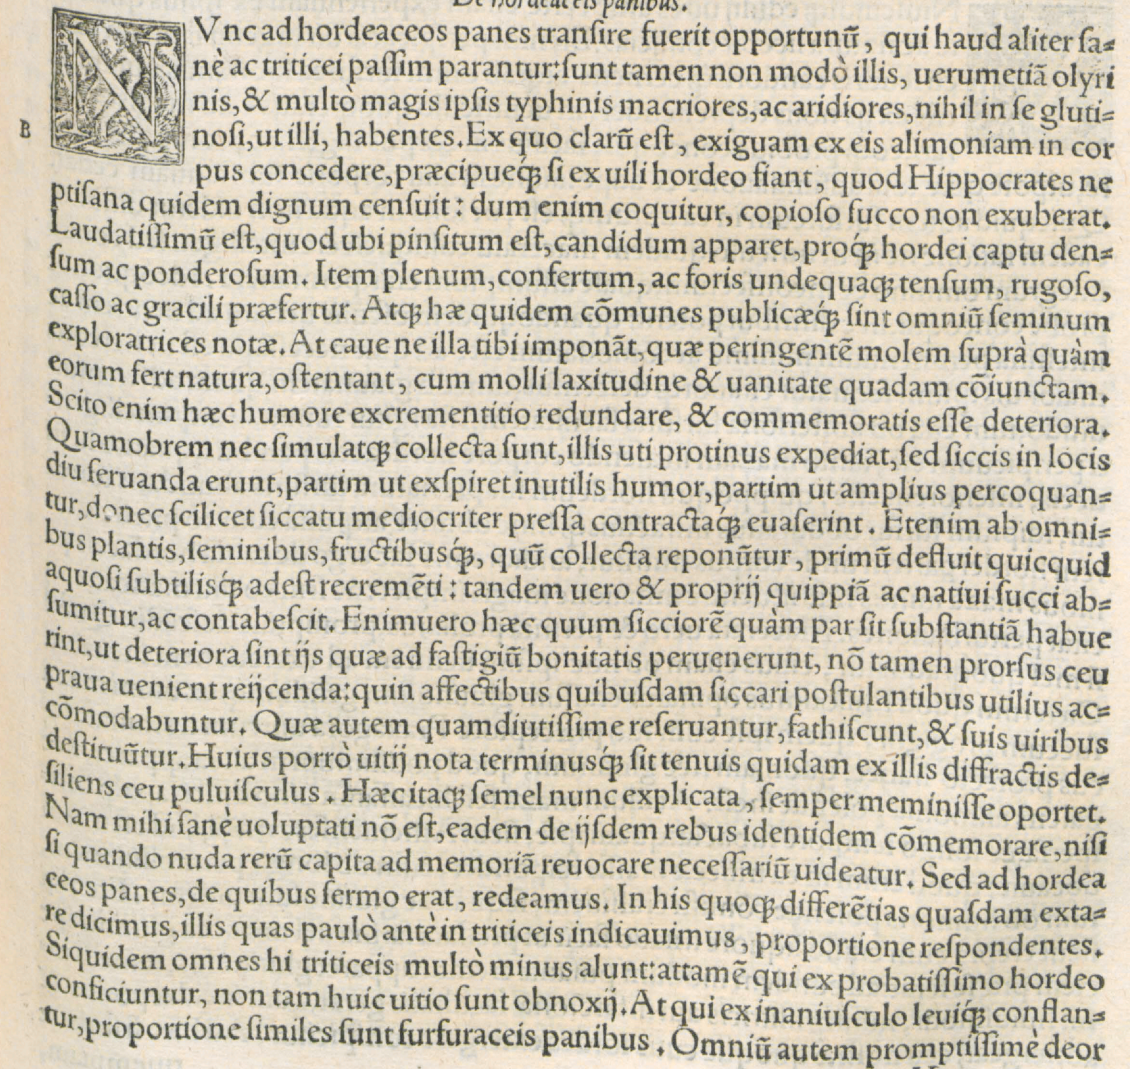 De hordeaceis panibus.
NVnc ad hordeaceos panes tranſire fuerit opportunũ, qui haud aliter ſa-
nè ac triticei paſſim parantur:ſunt tamen non modò illis, uerumetiã olyri
nis,& multò magis ipſis typhinis macriores,ac aridiores,nihil in ſe gluti-
B
noſi,ut illi, habentes.Ex quo clarũ eſt, exiguam ex eis alimoniam in cor
pus concedere,præcipueq́ꝫ ſi ex uili hordeo fiant, quod Hippocrates ne
ptiſana quidem dignum cenſuit: dum enim coquitur, copioſo ſucco non exuberat.
Laudatiſſimũ eſt,quod ubi pinſitum eſt,candidum apparet,proq́ꝫ hordei captu den-
ſum ac ponderoſum. Item plenum,confertum, ac foris undequaqꝫ tenſum, rugoſo,
caſſo ac gracili præfertur. Atqꝫ hæ quidem cõmunes publicæq́ꝫ ſint omniũ ſeminum
exploratrices notæ. At caue ne illa tibi imponãt,quæ peringentẽ molem ſuprà quàm
eorum fert natura,oſtentant, cum molli laxitudine & uanitate quadam cõiunctam.
Scito enim hæc humore excrementitio redundare, & commemoratis eſſe deteriora.
Quamobrem nec ſimulatqꝫ collecta ſunt,illis uti protinus expediat,ſed ſiccis in locis
diu ſeruanda erunt,partim ut exſpiret inutilis humor,partim ut amplius percoquan-
tur,donec ſcilicet ſiccatu mediocriter preſſa contractaq́ꝫ euaſerint. Etenim ab omni-
bus plantis,ſeminibus,fructibusq́ꝫ, quũ collecta reponũtur, primũ defluit quicquid
aquoſi ſubtilisq́ꝫ adeſt recremẽti: tandem uero & proprij quippiã ac natiui ſucci ab-
ſumitur,ac contabeſcit. Enimuero hæc quum ſicciorẽ quàm par ſit ſubſtantiã habue
rint,ut deteriora ſint ijs quæ ad faſtigiũ bonitatis peruenerunt, nõ tamen prorſus ceu
praua uenient reijcenda:quin affectibus quibuſdam ſiccari poſtulantibus utilius ac-
cõmodabuntur. Quæ autem quamdiutiſſime reſeruantur,fathiſcunt,& ſuis uiribus
deſtituũtur.Huius porrò uitij nota terminusq́ꝫ ſit tenuis quidam ex illis diffractis de-
ſiliens ceu puluiſculus. Hæc itaqꝫ ſemel nunc explicata, ſemper meminiſſe oportet.
Nam mihi ſanè uoluptati nõ eſt,eadem de ijſdem rebus identidem cõmemorare,niſi
ſi quando nuda rerũ capita ad memoriã reuocare neceſſariũ uideatur. Sed ad hordea
ceos panes,de quibus ſermo erat, redeamus. In his quoqꝫ differẽtias quaſdam exta-
re dicimus,illis quas paulò antè in triticeis indicauimus, proportione reſpondentes.
Siquidem omnes hi triticeis multò minus alunt:attamẽ qui ex probatiſſimo hordeo
conficiuntur, non tam huic uitio ſunt obnoxij.At qui ex inaniuſculo leuiq́ꝫ conflan-
tur,proportione ſimiles ſunt furfuraceis panibus. Omniũ autem promptiſſimè deor